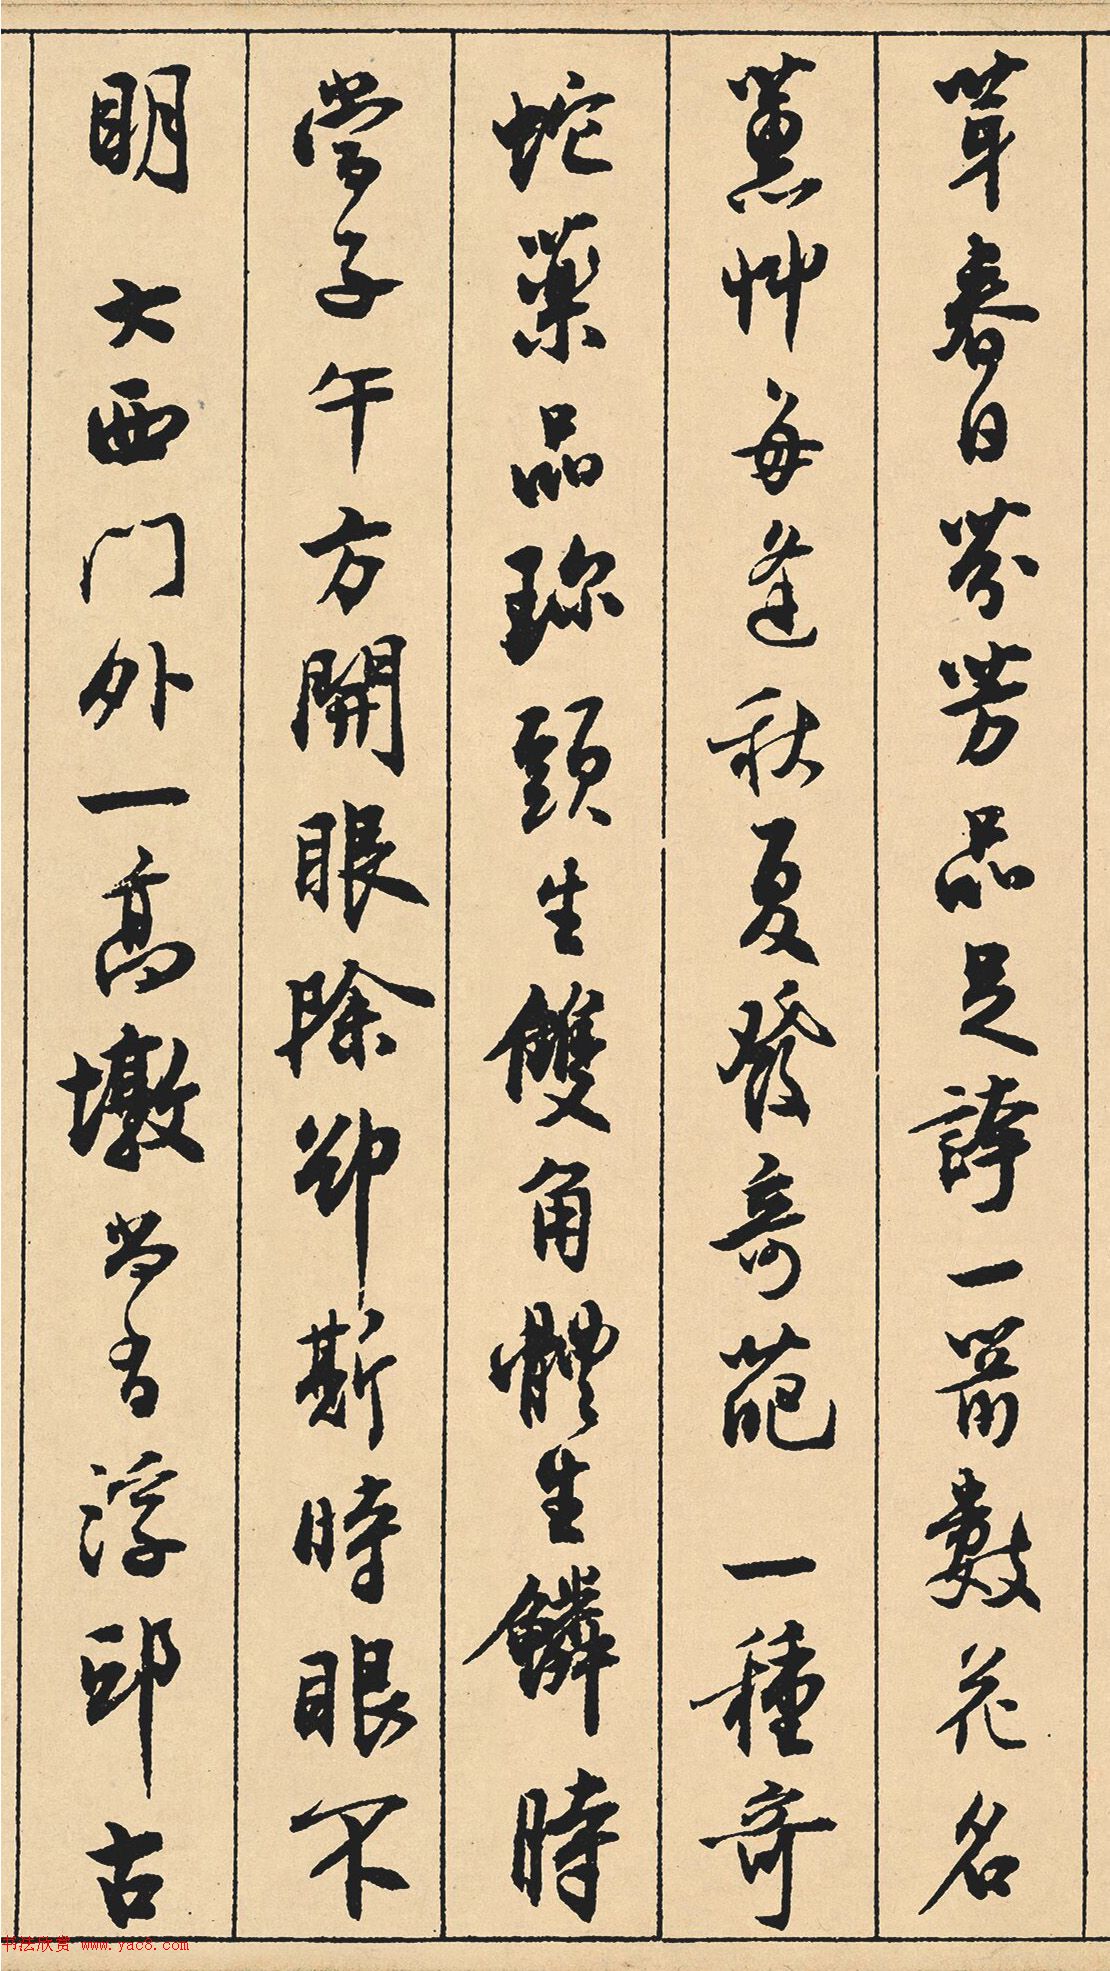 茸春日芬芳品足誇一箭數花名
蕙艸每逢秋夏發奇葩 一種奇
蛇藥品珍頭生雙角體生鱗時
當子午方開眼除卻斯時眼不
明 大西門外一高墩尚有浮邱古
书法欣赏 www.yac8.com